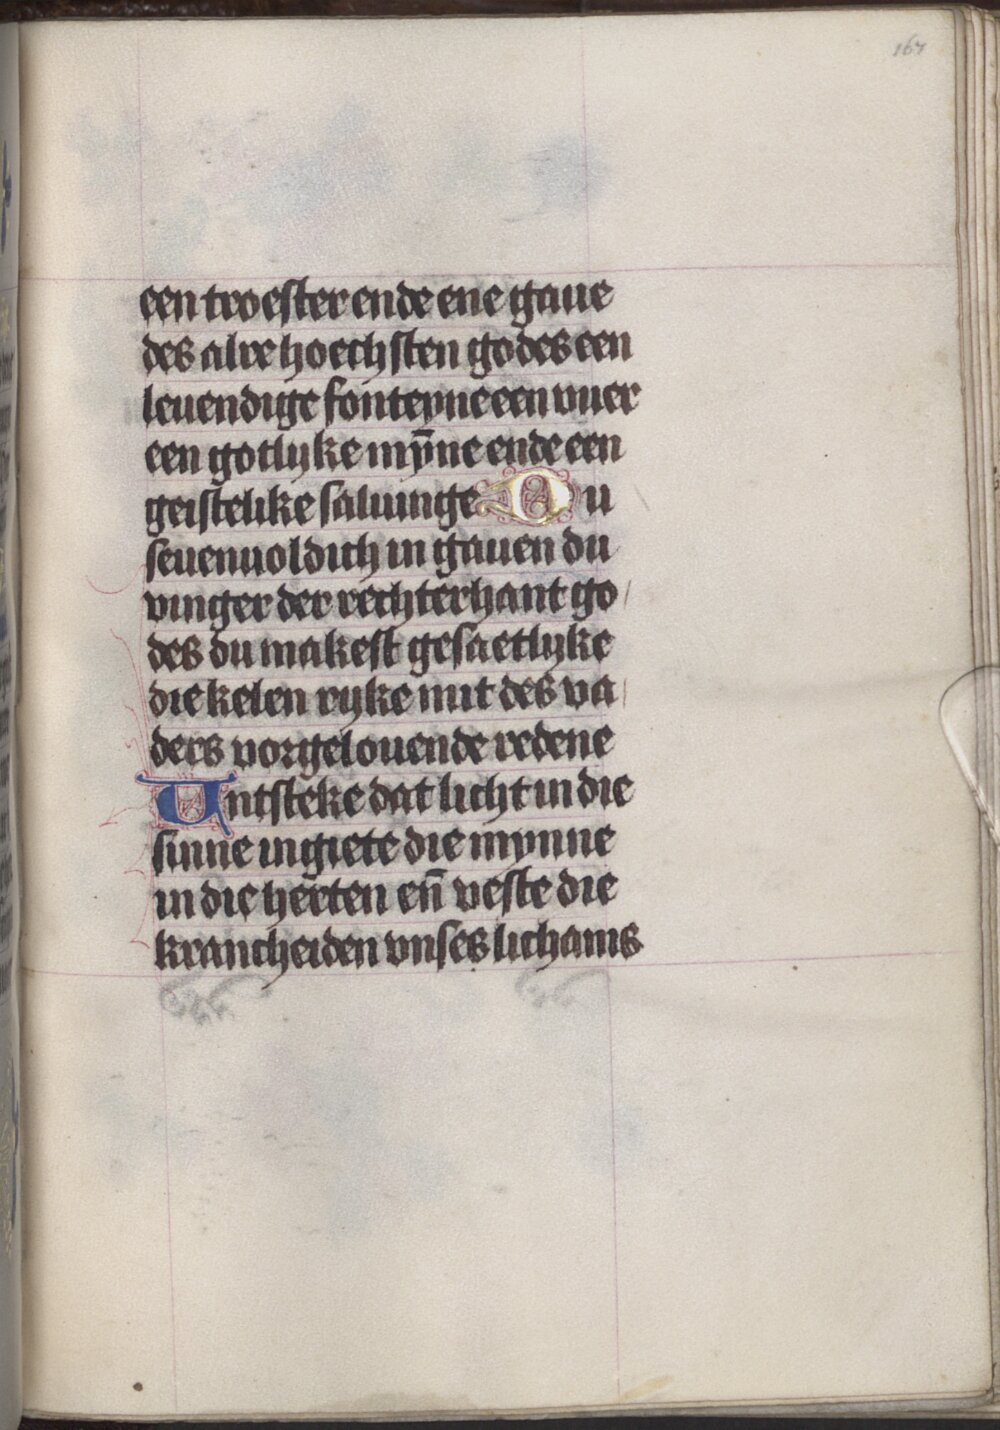 167
een troester ende ene gaue
des alre hoechsten godes een
leuendige fonteyne een vuer
een gotlyke mȳne ende een
geistelike saluinge Du
seuenuoldich in gauen du
vinger der rechterhant go/
des du makest gesaetlyke
die kelen ryke mit des va/
ders vorgelouende redene
Untsteke dat licht in die
sinne ingiete die mynne
in die herten en̄ veste die
krancheiden vnses lichams